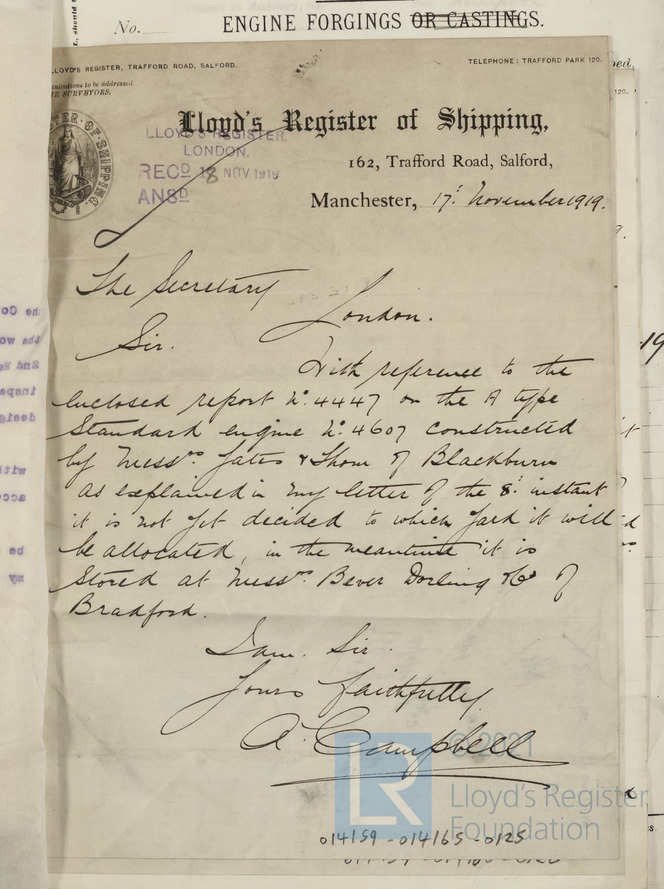 No.
ENGINE FORGINGS OR CASTINGS.
LLOYD'S REGISTER, TRAFFORD ROAD, SALFORD.
TELEPHONE: TRAFFORD PARK 120.
to be addressed
SURVEYORS.
Lloyd's Register of Shipping,
LLOYD'S REGISTER,
LONDON.
162, Trafford Road, Salford,
RECD 18 NOV 1919
ANSD
Manchester, 17th November 1919.
The Secretary
London.
Sir.
With reference to the
enclosed report No. 4447 on the A type
Standard engine No. 4607 constructed
by Messrs. Yates & Thom of Blackburn
as explained in my letter of the 8th instant
it is not yet decided to which yard it will
be allocated, in the meantime it is
stored at Messrs. Bever Dorling & Co of
Bradford.
I am. Sir.
Yours faithfully
A. Campbell
© 2021
LR
Lloyd's Register
Foundation
014159-014165-0125